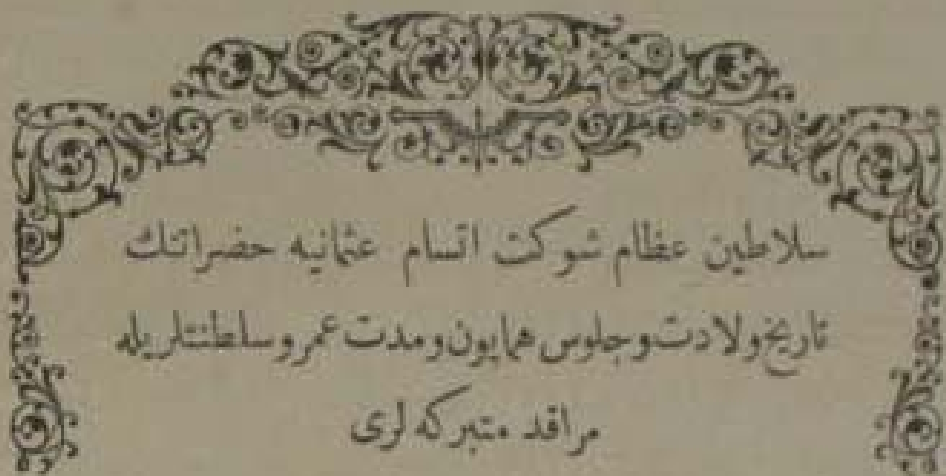 سلاطين عظام شوكت اتسام عثمانيه حضراتنك
تاريخ ولادت و جلوس همايون و مدت عمر و سلطنتلريله
مراقد متبركه لرى